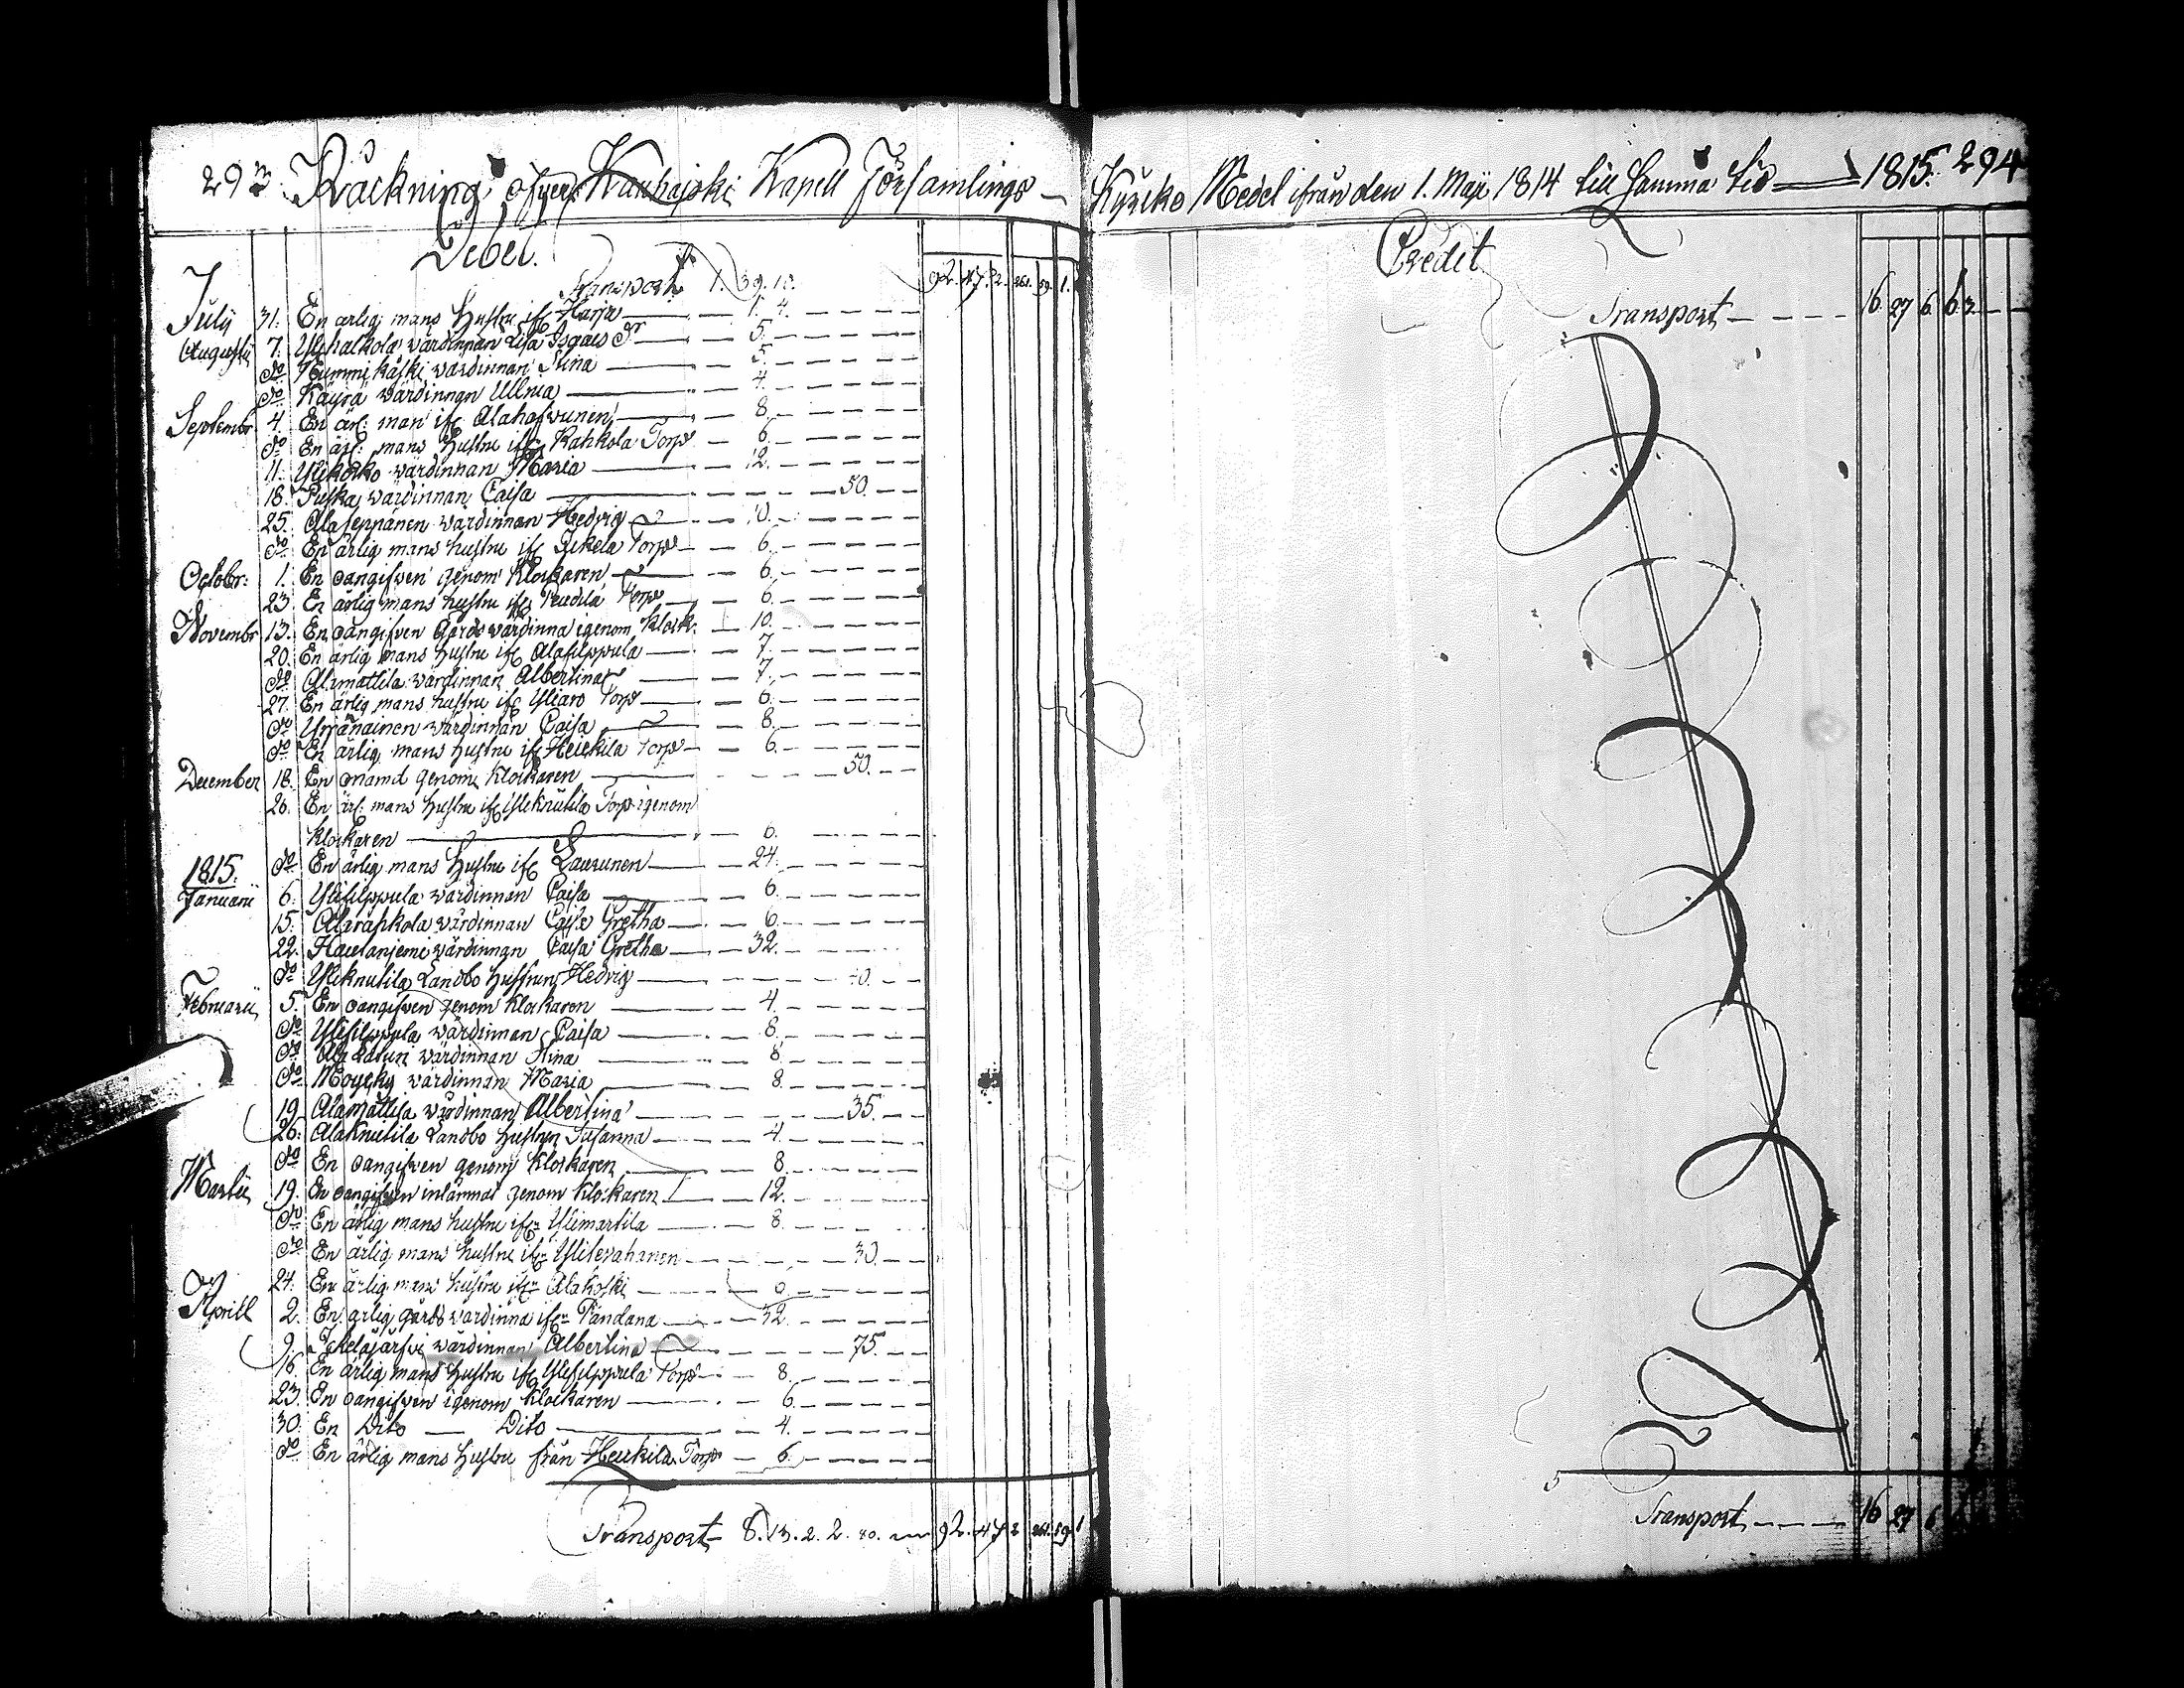 293. Räckning öfver Kauhajoki Kapell Församlings
Debet.
Transport 1. 39. 10. 92. 47. 2. 261. 59. 1.
July 31. En ärlig mans Hustru ifr Harja — 1. 4. —
Augusti 7. värdinnan Lisa Isaacs Dr — 5. —
Do Nummikåski värdinnan Stina — 5. —
Do Käyrä värdinnan Ullrica — 4. —
Septembr 4. En ärl: man ifr Alahafvunen — 8. —
Do En ärl: mans Hustru ifr Rahkola Torp — 6. —
11. Ylikoko värdinnan Maria — 12. —
18. Puska värdinnan Caisa — 50. —
25. Alaseppänen värdinnan Hedvig — 10. —
Do En ärlig mans hustru ifr Ikela Torp — 6. —
Octobr: 1. En oangifven genom Klockaren — 6. —
23. En ärlig mans hustru ifr Torp — 6. —
Novembr 13. En oangifven Gårds värdinna igenom Klock. — 10. —
20. En ärlig mans Hustru ifr Alafilppula — 7. —
Do Alamattila värdinnan Albertina — 7. —
27. En ärlig mans hustru ifr Yliaro Torp — 6. —
Do värdinnan Caisa — 8. —
Do En ärlig mans Hustru ifr Heickilä Torp — 6. —
December 18. En onamd genom Klockaren — 50. —
26. En ärl: mans Hustru ifr Yliknutila Torp igenom
Klockaren — 6. —
Do En ärlig mans Hustru ifr Laurunen — 24. —
1815.
Januarii 6. Ylifilppula värdinnan Caisa — 6. —
15. Alarahkola värdinnan Caisa Gretha — 6. —
22. Hautaniemi värdinnan Caisa Gretha — 32. —
Do Yliknutila Landbo Hustrun Hedvig —
Februarii 5. En oangifven genom Klockaren — 4. —
Do Ylifilppula värdinnan Caisa — 8. —
Do värdinnan Stina — 8. —
Do Moycky värdinnan Maria — 8. —
19. Alamattila värdinnan Albertina — 35. —
26. Alaknutila Landbo Hustrun Susanna — 4. —
Do En oangifven genom Klockaren — 8. —
Martii 19. En oangifven inlämnat genom Klockaren — 12. —
Do En ärlig mans hustru ifrn Ylimartila — 8. —
Do En ärlig mans hustru ifrn — 30. —
24. En ärlig mans hustru ifrn Alakoski —
Aprill 2. En ärlig gårds värdinna ifrn Pändänä — 32. —
9. Ickeläjärfvi värdinnan Albertina — 75. —
16. En ärlig mans Hustru ifr Ylifilppula Torp — 8. —
23. En oangifven igenom Klockaren — 6. —
30. En Dito — Dito — 4. —
Do En ärlig mans Hustru från Heickilä Torp — 6. —
Transport 8. 13. 2. 2. 80. — 92. 47. 2. 261. 59. 1
Kyrcko Medel ifrån den 1. Maji 1814 till samma tid — 1815. 294
Credit
Transport — 16. 27. 6. 63. —
Transport — 16 27 6